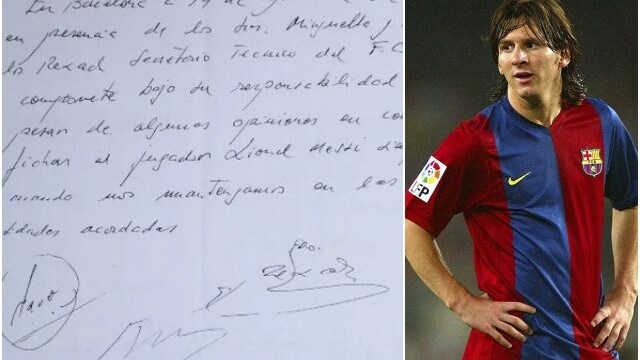 En Barcelona a 14 de
en presencia de los Srs. Minguella y
los Rexach Secretario Técnico del F.C
compromete bajo su responsabilidad
pesar de algunas opiniones en con
fichar al jugador Lionel Messi
cuando nos mantengamos en las
tidades acordadas
LFP